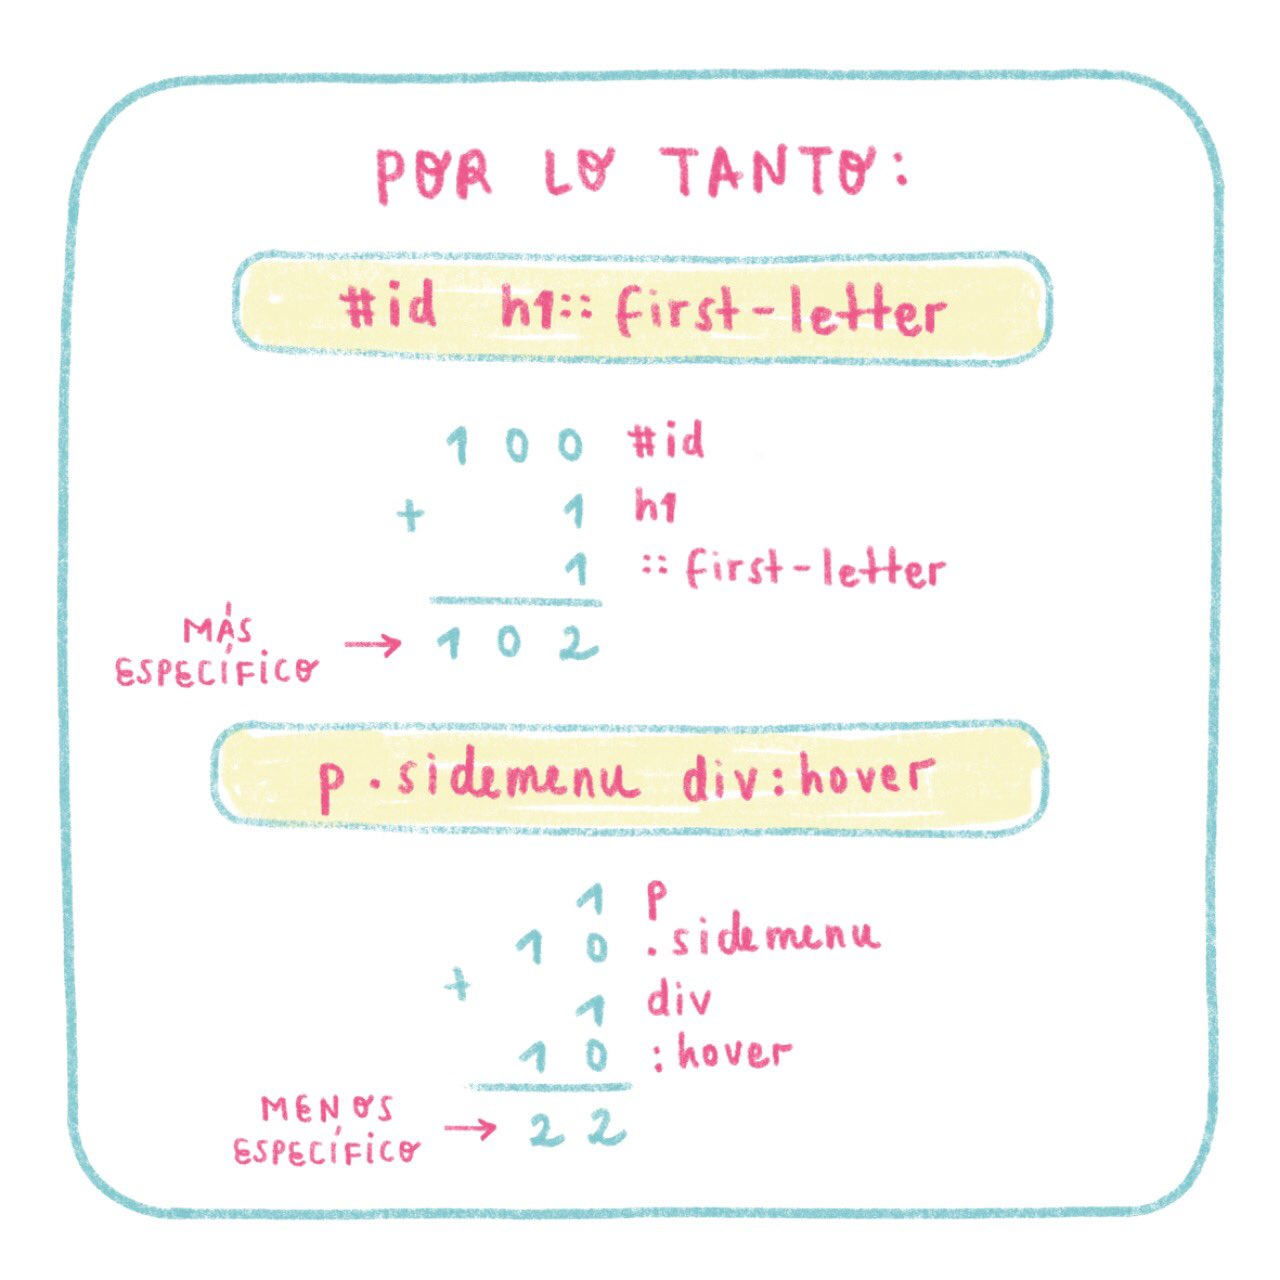 POR LO TANTO:
#id h1::first-letter
100 #id
+ 1 h1
1 ::first-letter
MÁS
ESPECÍFICO → 102
p.sidemenu div:hover
1 p
10 .sidemenu
+
1 div
10 :hover
MENOS
ESPECÍFICO → 22